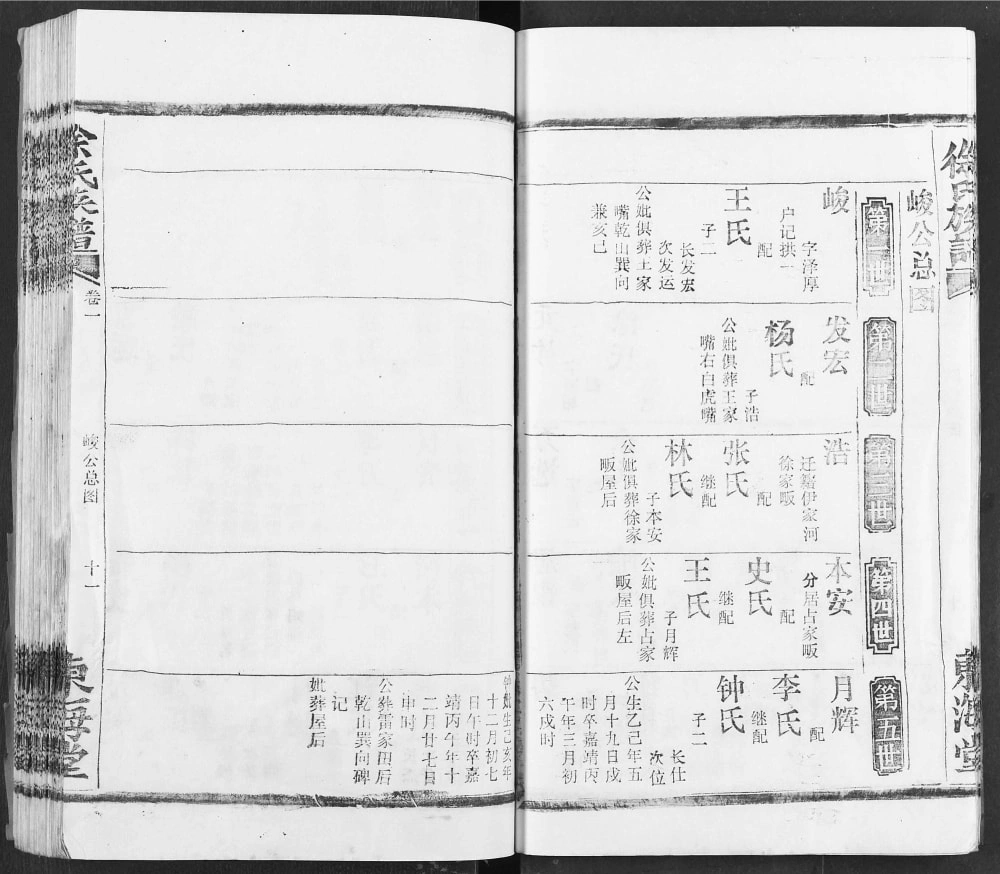 徐氏族谱
东海堂
峻公总图
第一世
峻
字泽厚
户记拱一
配
王氏
子二
长发宏
次发运
公妣俱葬王家
嘴乾山巽向
兼亥己
第二世
发宏
配
杨氏
子浩
公妣俱葬王家
嘴右白虎嘴
第三世
浩
迁籍伊家河
徐家畈
配
张氏
继配
林氏
子本安
公妣俱葬徐家
畈屋后
第四世
本安
分居占家畈
配
史氏
继配
王氏
子月辉
公妣俱葬占家
畈屋后左
第五世
月辉
配
李氏
继配
钟氏
子二
长仕
次位
公生乙己年五
月十九日戌
时卒嘉靖丙
午年三月初
六戌时
钟妣生己亥年
十二月初七
日午时卒嘉
靖丙午年十
二月廿七日
申时
公葬雷家田后
乾山巽向碑
记
妣葬屋后
徐氏族谱
卷一
峻公总图
十一
东海堂